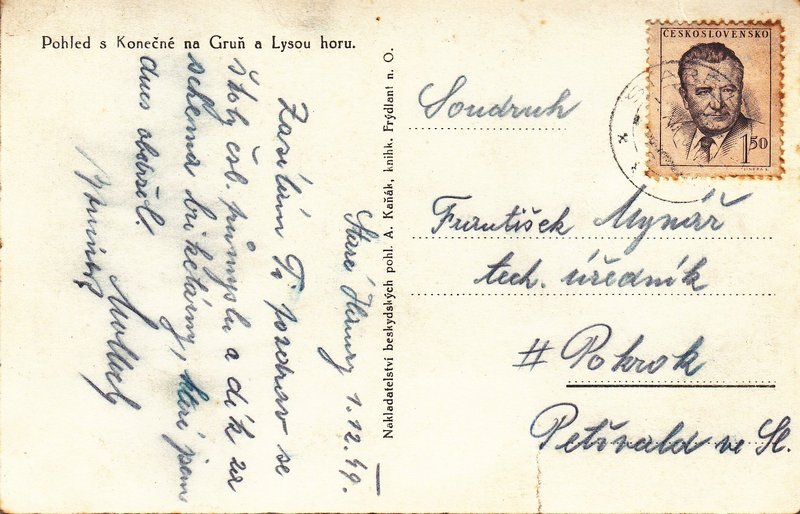 Pohled s Konečné na Gruň a Lysou horu.
Staré Hamry 1.12.49.
Zasílám Ti pozdrav se
školy čsl. průmyslu a dík za
schema briketárny, které jsem
dnes obdržel.
Nakladatelství beskydských pohl. A. Kaňák, knihk. Frýdlant n. O.
ČESKOSLOVENSKO
1.50
Soudruh
František Mynář
tech. úředník
# Pokrok
Petřvald ve Sl.